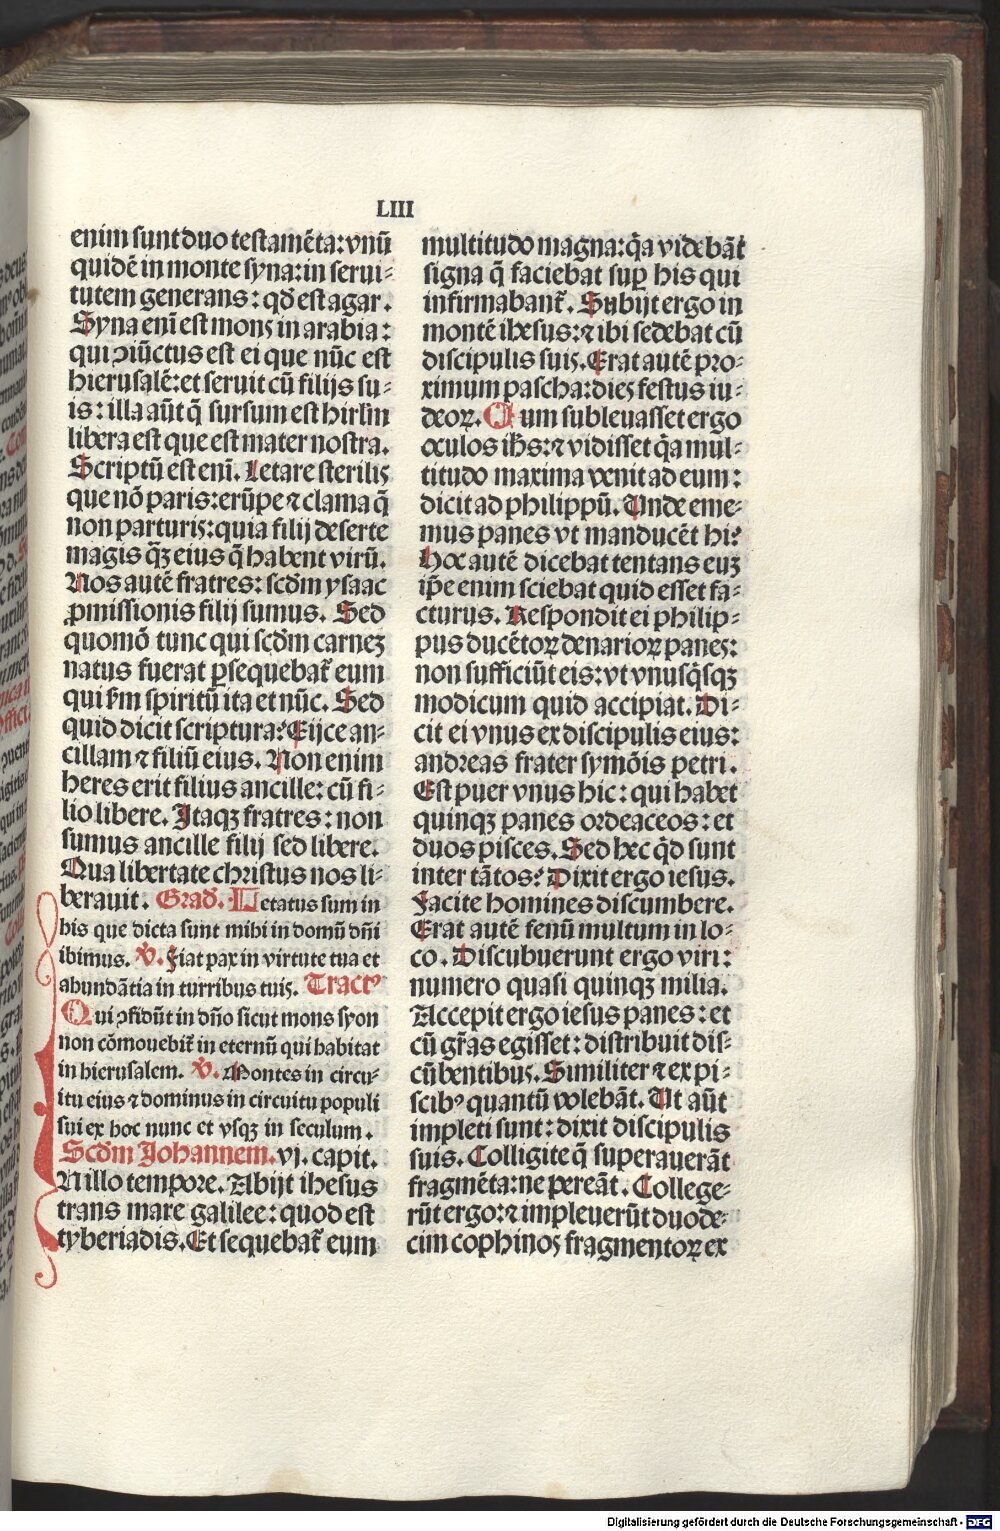 LIII
enim sunt duo testamēta: vnū
quidē in monte syna: in serui⸗
tutem generans: qd̄ est agar.
Syna eni̅ est mons in arabia:
qui ꝯiūctus est ei que nūc est
hierusalē: et seruit cū filijs su⸗
is: illa aūt q̄ sursum est hirlm̄
libera est que est mater nostra.
Scriptū est eni̅. Letare sterilis
que nō paris: erūpe ⁊ clama q̄
non parturis: quia filij deserte
magis qꝫ eius q̄ habent virū.
Nos autē fratres: scd̄m ysaac
ꝓmissionis filij sumus. Sed
quomō tunc qui scd̄m carneꝫ
natus fuerat ꝑsequebat̄ eum
qui ẜm spiritū ita et nūc. Sed
quid dicit scriptura? Eijce an⸗
cillam ⁊ filiū eius. Non enim
heres erit filius ancille: cū fi⸗
lio libere. Itaqꝫ fratres: non
sumus ancille filij sed libere.
Qua libertate christus nos li⸗
berauit. Grad̄. Letatus sum in
his que dicta sunt mihi in domū dn̄i
ibimus. ℣. Fiat pax in virtute tua et
abundātia in turribus tuis. Tractꝰ
Qui ꝯfidūt in dn̄o sicut mons syon
non cōmouebit̄ in eternū qui habitat
in hierusalem. ℣. Montes in circu⸗
itu eius ⁊ dominus in circuitu populi
sui ex hoc nunc et vsqꝫ in seculum.
Scd̄m Johannem. vj. capit.
IN illo tempore. Abijt ihesus
trans mare galilee: quod est
tyberiadis. Et sequebat̄ eum
multitudo magna: q̄a videbāt
signa q̄ faciebat suꝑ his qui
infirmabant̄. Subijt ergo in
montē ihesus: ⁊ ibi sedebat cū
discipulis suis. Erat autē pro⸗
ximum pascha: dies festus iu⸗
deoꝝ. Cum subleuasset ergo
oculos ih̄s: ⁊ vidisset q̄a mul⸗
titudo maxima venit ad eum:
dicit ad philippū. Unde eme⸗
mus panes vt manducēt hi?
Hoc autē dicebat tentans euꝫ
ip̄e enim sciebat quid esset fa⸗
cturus. Respondit ei philip⸗
pus ducētoꝝ denarioꝝ panes:
non sufficiūt eis: vt vnusq̄sqꝫ
modicum quid accipiat. Di⸗
cit ei vnus ex discipulis eius:
andreas frater symōis petri.
Est puer vnus hic: qui habet
quinqꝫ panes ordeaceos: et
duos pisces. Sed hec q̄d sunt
inter tātos? Dixit ergo iesus.
Facite homines discumbere.
Erat autē fenū multum in lo⸗
co. Discubuerunt ergo viri:
numero quasi quinqꝫ milia.
Accepit ergo iesus panes: et
cū gr̄as egisset: distribuit dis⸗
cūbentibus. Similiter ⁊ ex pi⸗
scibꝰ quantū volebāt. Ut aūt
impleti sunt: dixit discipulis
suis. Colligite q̄ superauerāt
fragmēta: ne pereāt. College⸗
rūt ergo: ⁊ impleuerūt duode⸗
cim cophinos fragmentoꝝ ex
Digitalisierung gefördert durch die Deutsche Forschungsgemeinschaft - DFG